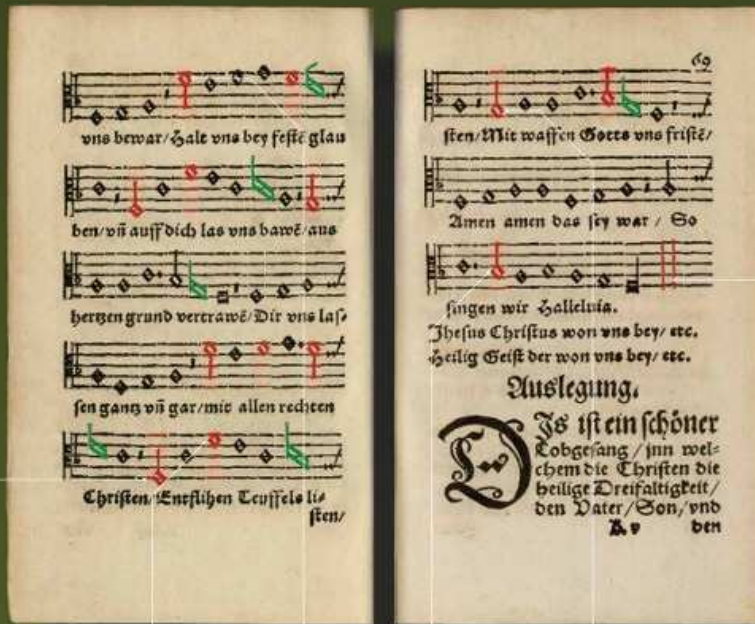 vns bewar/Halt vns bey festẽ glau
ben/vñ auff dich las vns bawẽ/aus
hertzen grund vertrawẽ/Dir vns las⸗
sen gantz vñ gar/mit allen rechten
Christen/Entflihen Teuffels li⸗
sten/
69
sten/Mit waffen Gotts vns fristẽ/
Amen amen das sey war / So
singen wir Halleluia.
Jhesus Christus won vns bey/ etc.
Heilig Geist der won vns bey/ etc.
Auslegung.
DJs ist ein schöner
Lobgesang / jnn wel⸗
chem die Christen die
heilige Dreifaltigkeit/
den Vater/Son/vnd
K v den